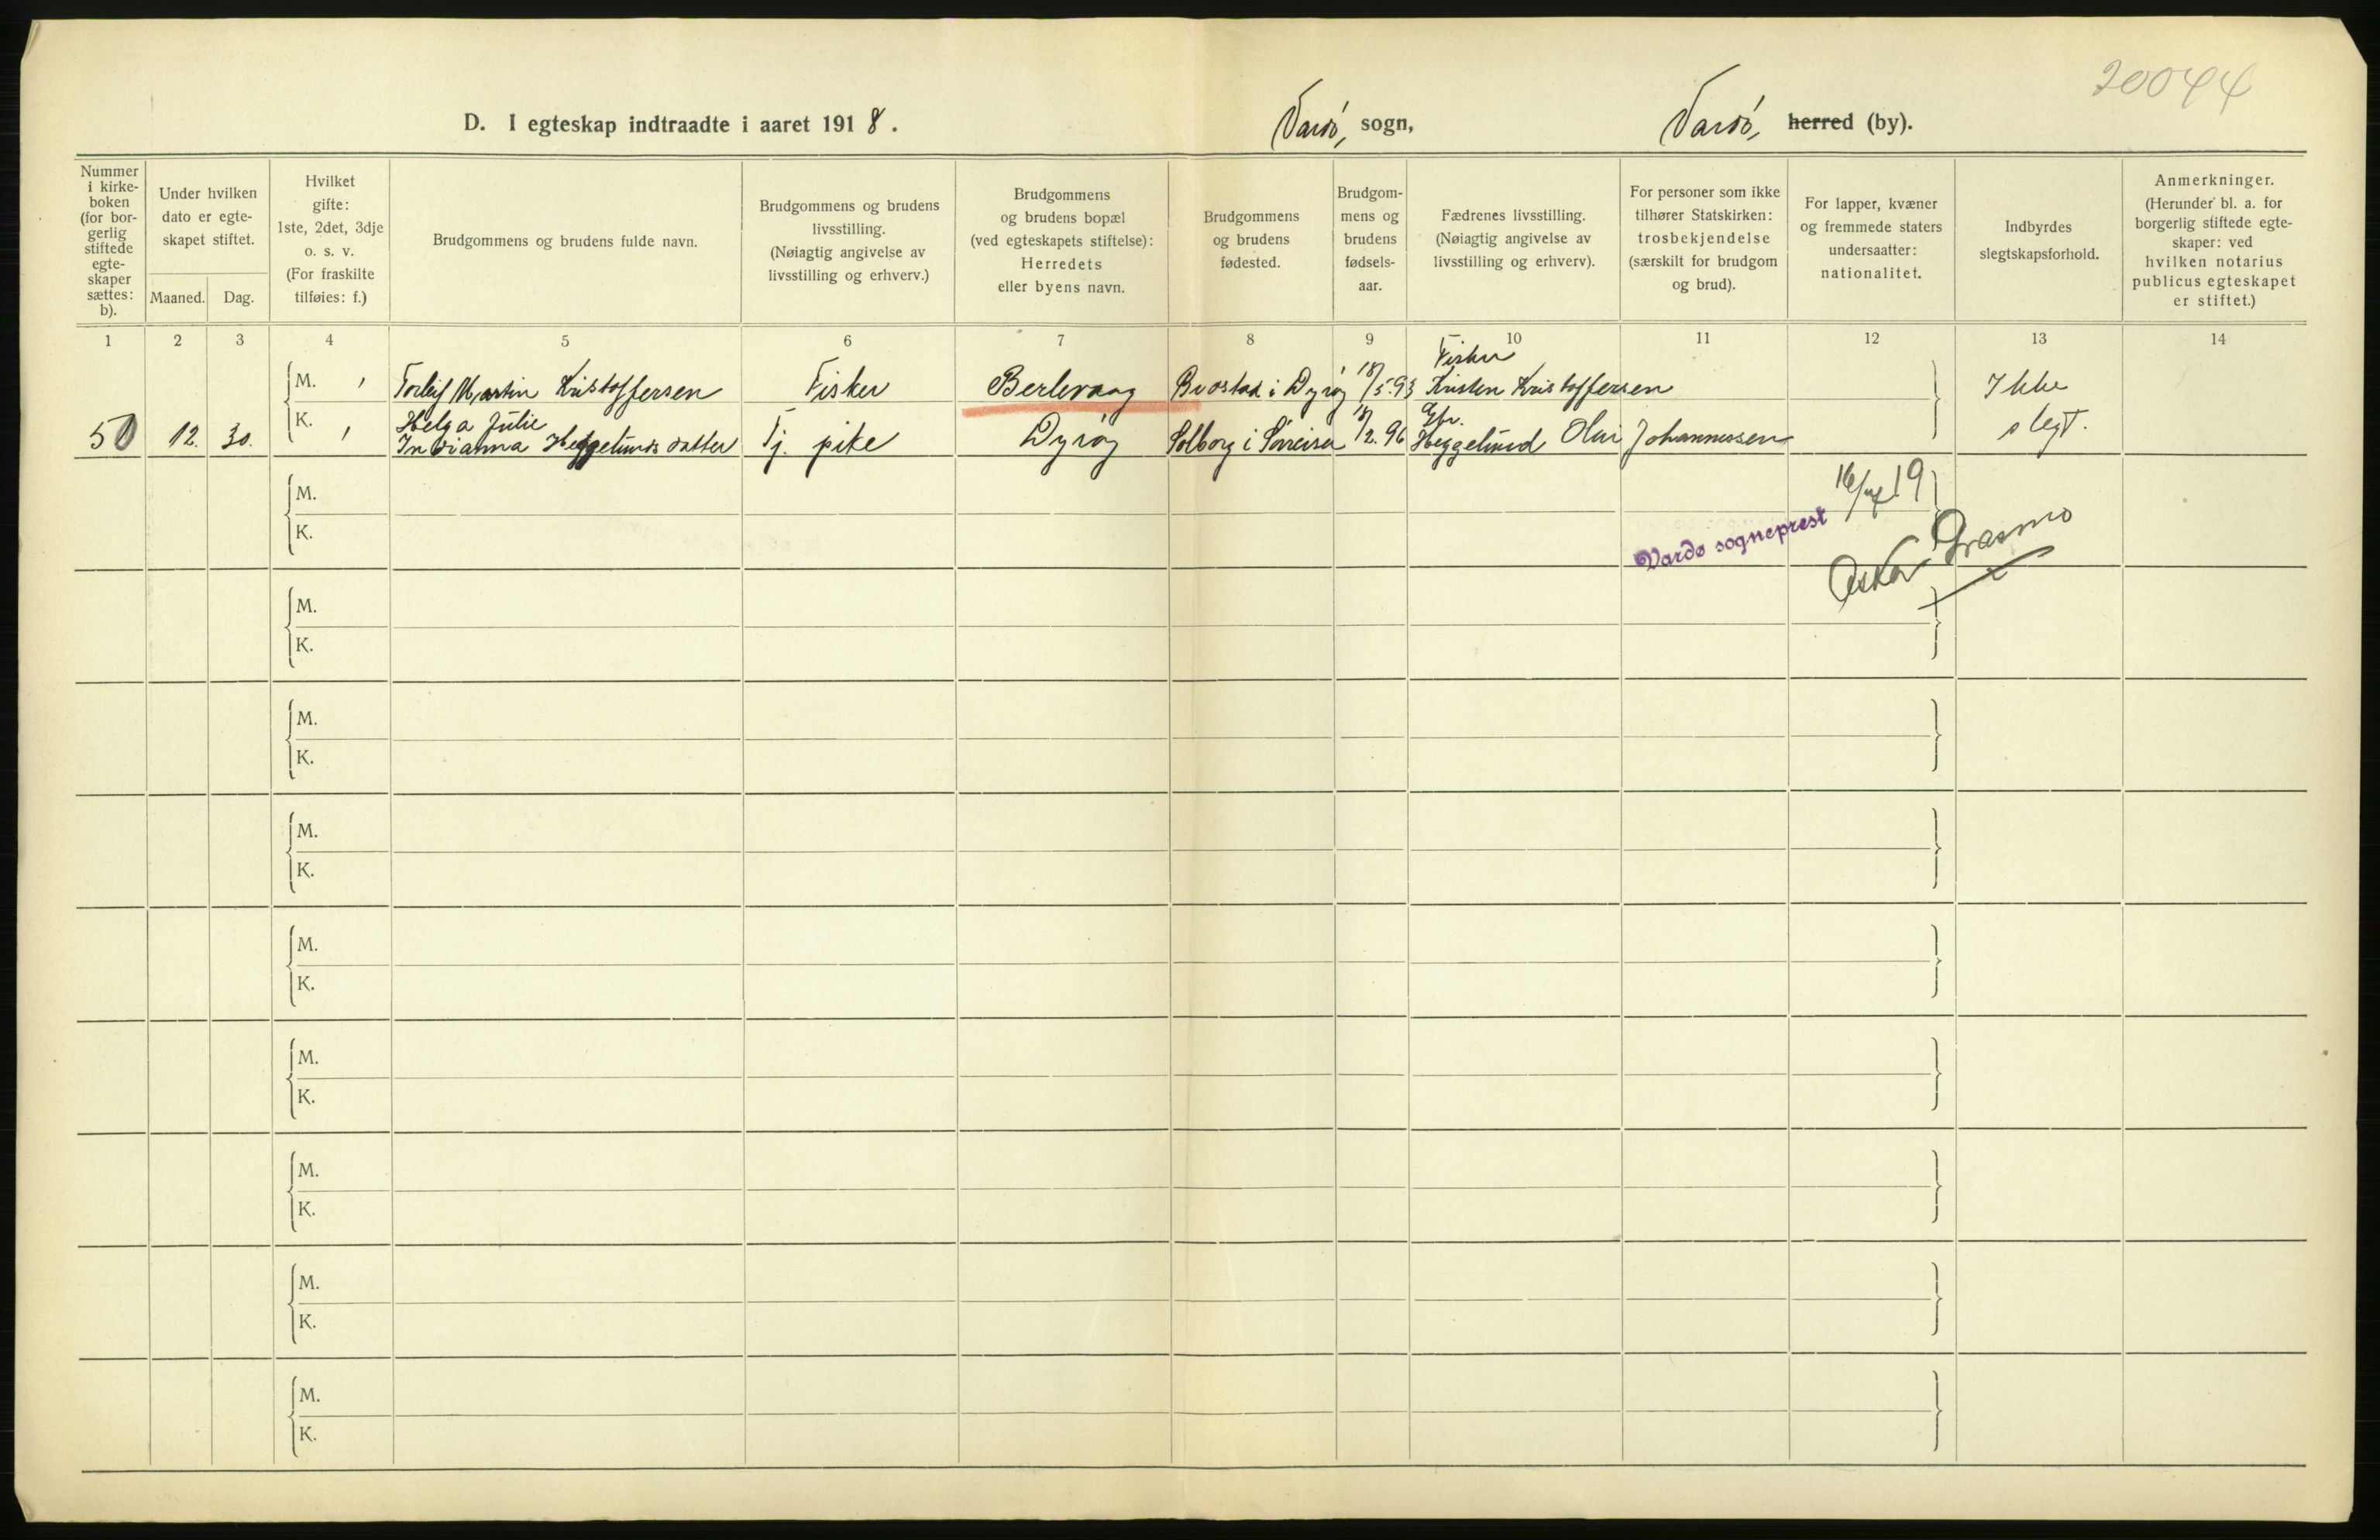 20044
D. I egteskap indtraadte i aaret 1918. Vardø, sogn, Vardø, herred (by).
Nummer i kirke- boken (for bor- gerlig stiftede egte- skaper sættes: b).
Under hvilken dato er egte- skapet stiftet.
Maaned. Dag.
Hvilket gifte: 1ste, 2det, 3dje o. s. v. (For fraskilte tilføies: f.)
Brudgommens og brudens fulde navn.
Brudgommens og brudens livsstilling. (Nøiagtig angivelse av livsstilling og erhverv.)
Brudgommens og brudens bopæl (ved egteskapets stiftelse): Herredets eller byens navn.
Brudgommens og brudens fødested.
Brudgom- mens og brudens fødsels- aar.
Fædrenes livsstilling. (Nøiagtig angivelse av livsstilling og erhverv).
For personer som ikke tilhører Statskirken: trosbekjendelse (særskilt for brudgom og brud).
For lapper, kvæner og fremmede staters undersaatter: nationalitet.
Indbyrdes slegtskapsforhold.
Anmerkninger. (Herunder bl. a. for borgerlig stiftede egte- skaper: ved hvilken notarius publicus egteskapet er stiftet.)
1 2 3 4 5 6 7 8 9 10 11 12 13 14
Fisker
M. 1 Torleif Martin Kristoffersen Fisker Berlevaag Brostad i Dyrøy 18/5.93 Kristen Kristoffersen Ikke
Helga Julie Gbr.
50 12. 30. K. 1 Indianna Heggelunds datter Tj. pike Dyrøy Solborg i Sørreisa 18/2.96 Heggelund Olai Johannessen slegt.
M. 16/4 19
K. Vardø sogneprest
Oskar Grasmo
M.
K.
M.
K.
M.
K.
M.
K.
M.
K.
M.
K.
M.
K.
M.
K.